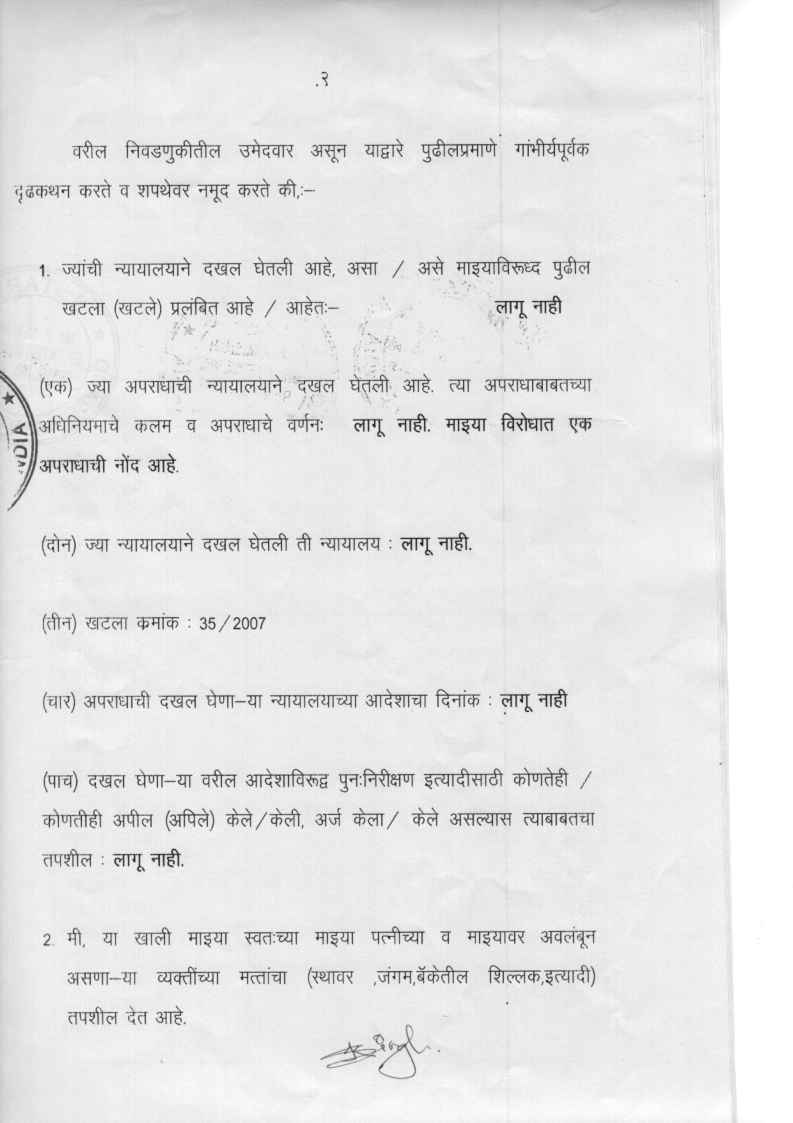 .२
वरील निवडणुकीतील उमेदवार असून याद्वारे पुढीलप्रमाणे गांभीर्यपूर्वक
दृढकथन करते व शपथेवर नमूद करते की,:–
1. ज्यांची न्यायालयाने दखल घेतली आहे, असा / असे माझ्याविरूध्द पुढील
खटला (खटले) प्रलंबित आहे / आहेतः– लागू नाही
(एक) ज्या अपराधाची न्यायालयाने दखल घेतली आहे. त्या अपराधाबाबतच्या
अधिनियमाचे कलम व अपराधाचे वर्णनः लागू नाही. माझ्या विरोधात एक
अपराधाची नोंद आहे.
(दोन) ज्या न्यायालयाने दखल घेतली ती न्यायालय : लागू नाही.
(तीन) खटला क्रमांक : 35/2007
(चार) अपराधाची दखल घेणा–या न्यायालयाच्या आदेशाचा दिनांक : लागू नाही
(पाच) दखल घेणा–या वरील आदेशाविरूद्व पुनःनिरीक्षण इत्यादीसाठी कोणतेही /
कोणतीही अपील (अपिले) केले/केली, अर्ज केला/ केले असल्यास त्याबाबतचा
तपशील : लागू नाही.
2. मी, या खाली माझ्या स्वतःच्या माझ्या पत्नीच्या व माझ्यावर अवलंबून
असणा–या व्यक्तींच्या मत्तांचा (स्थावर ,जंगम,बॅकेतील शिल्लक,इत्यादी)
तपशील देत आहे.